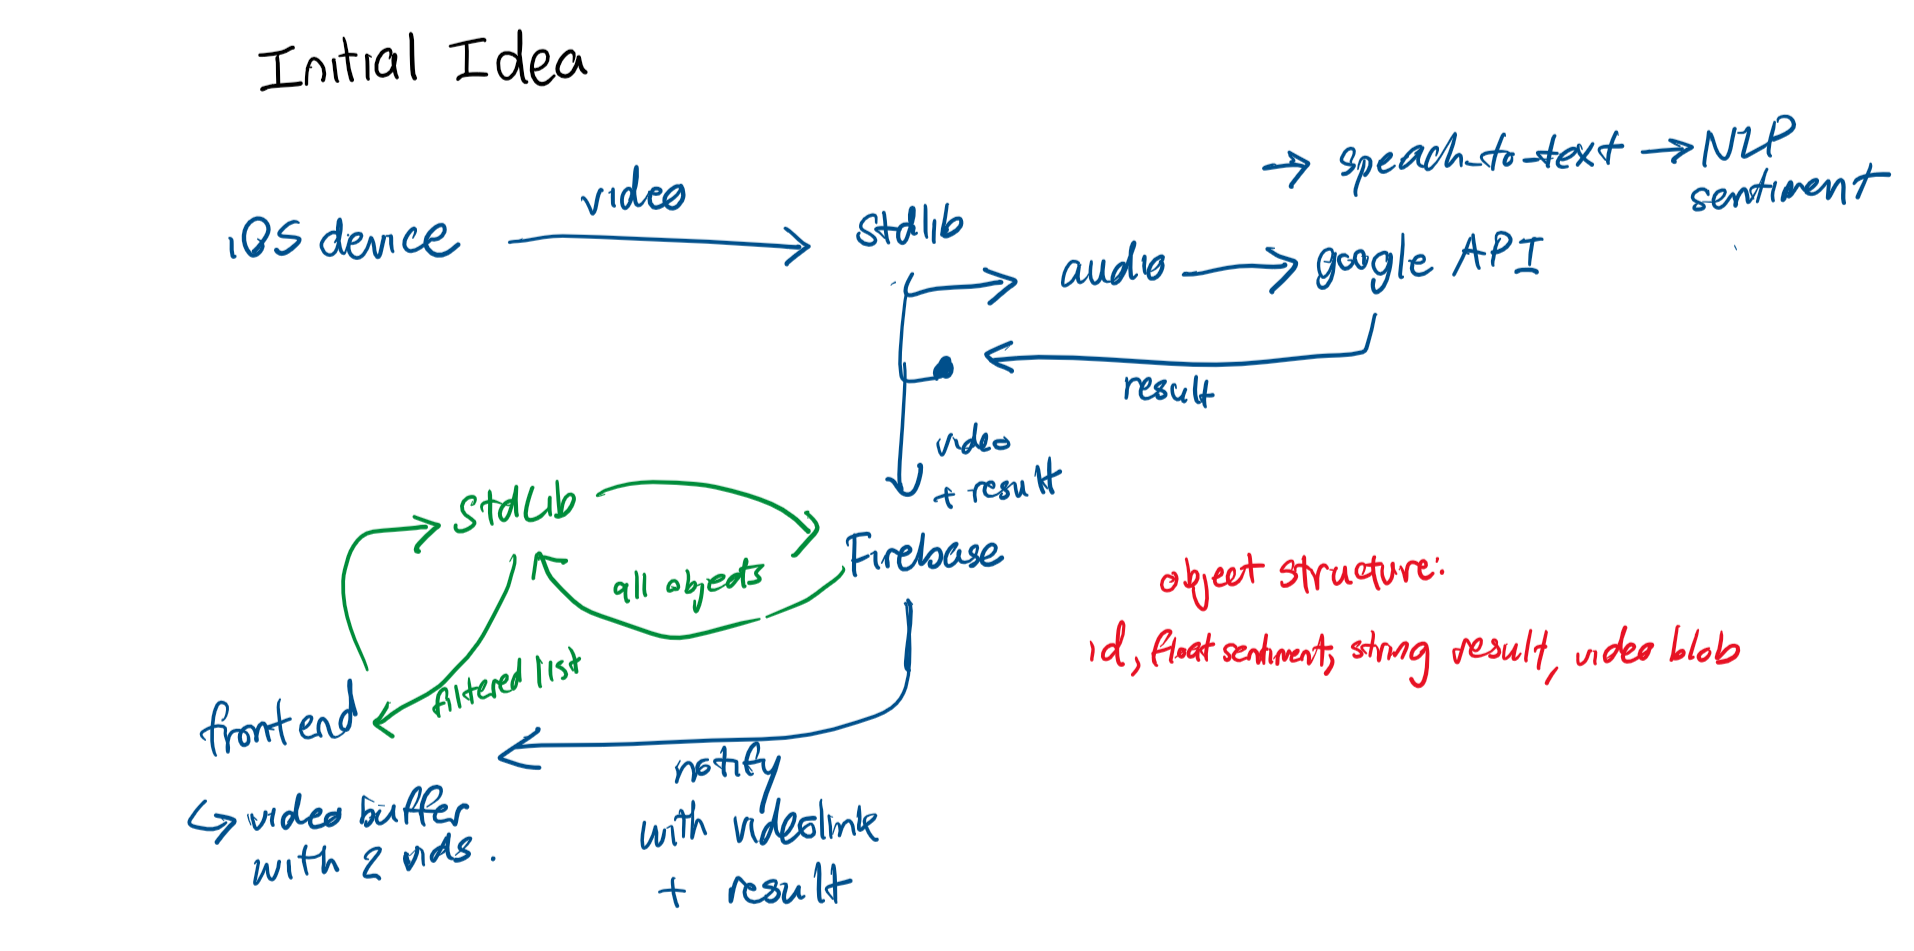 Initial Idea
→ speach-to-text → NLP
sentiment
iOS device
video
stdlib
audio
google API
result
video
+ result
StdLib
all objects
Firebase
filtered list
frontend
object structure:
id, float sentiment, string result, video blob
↳ video buffer
with 2 vids.
notify
with videolink
+ result